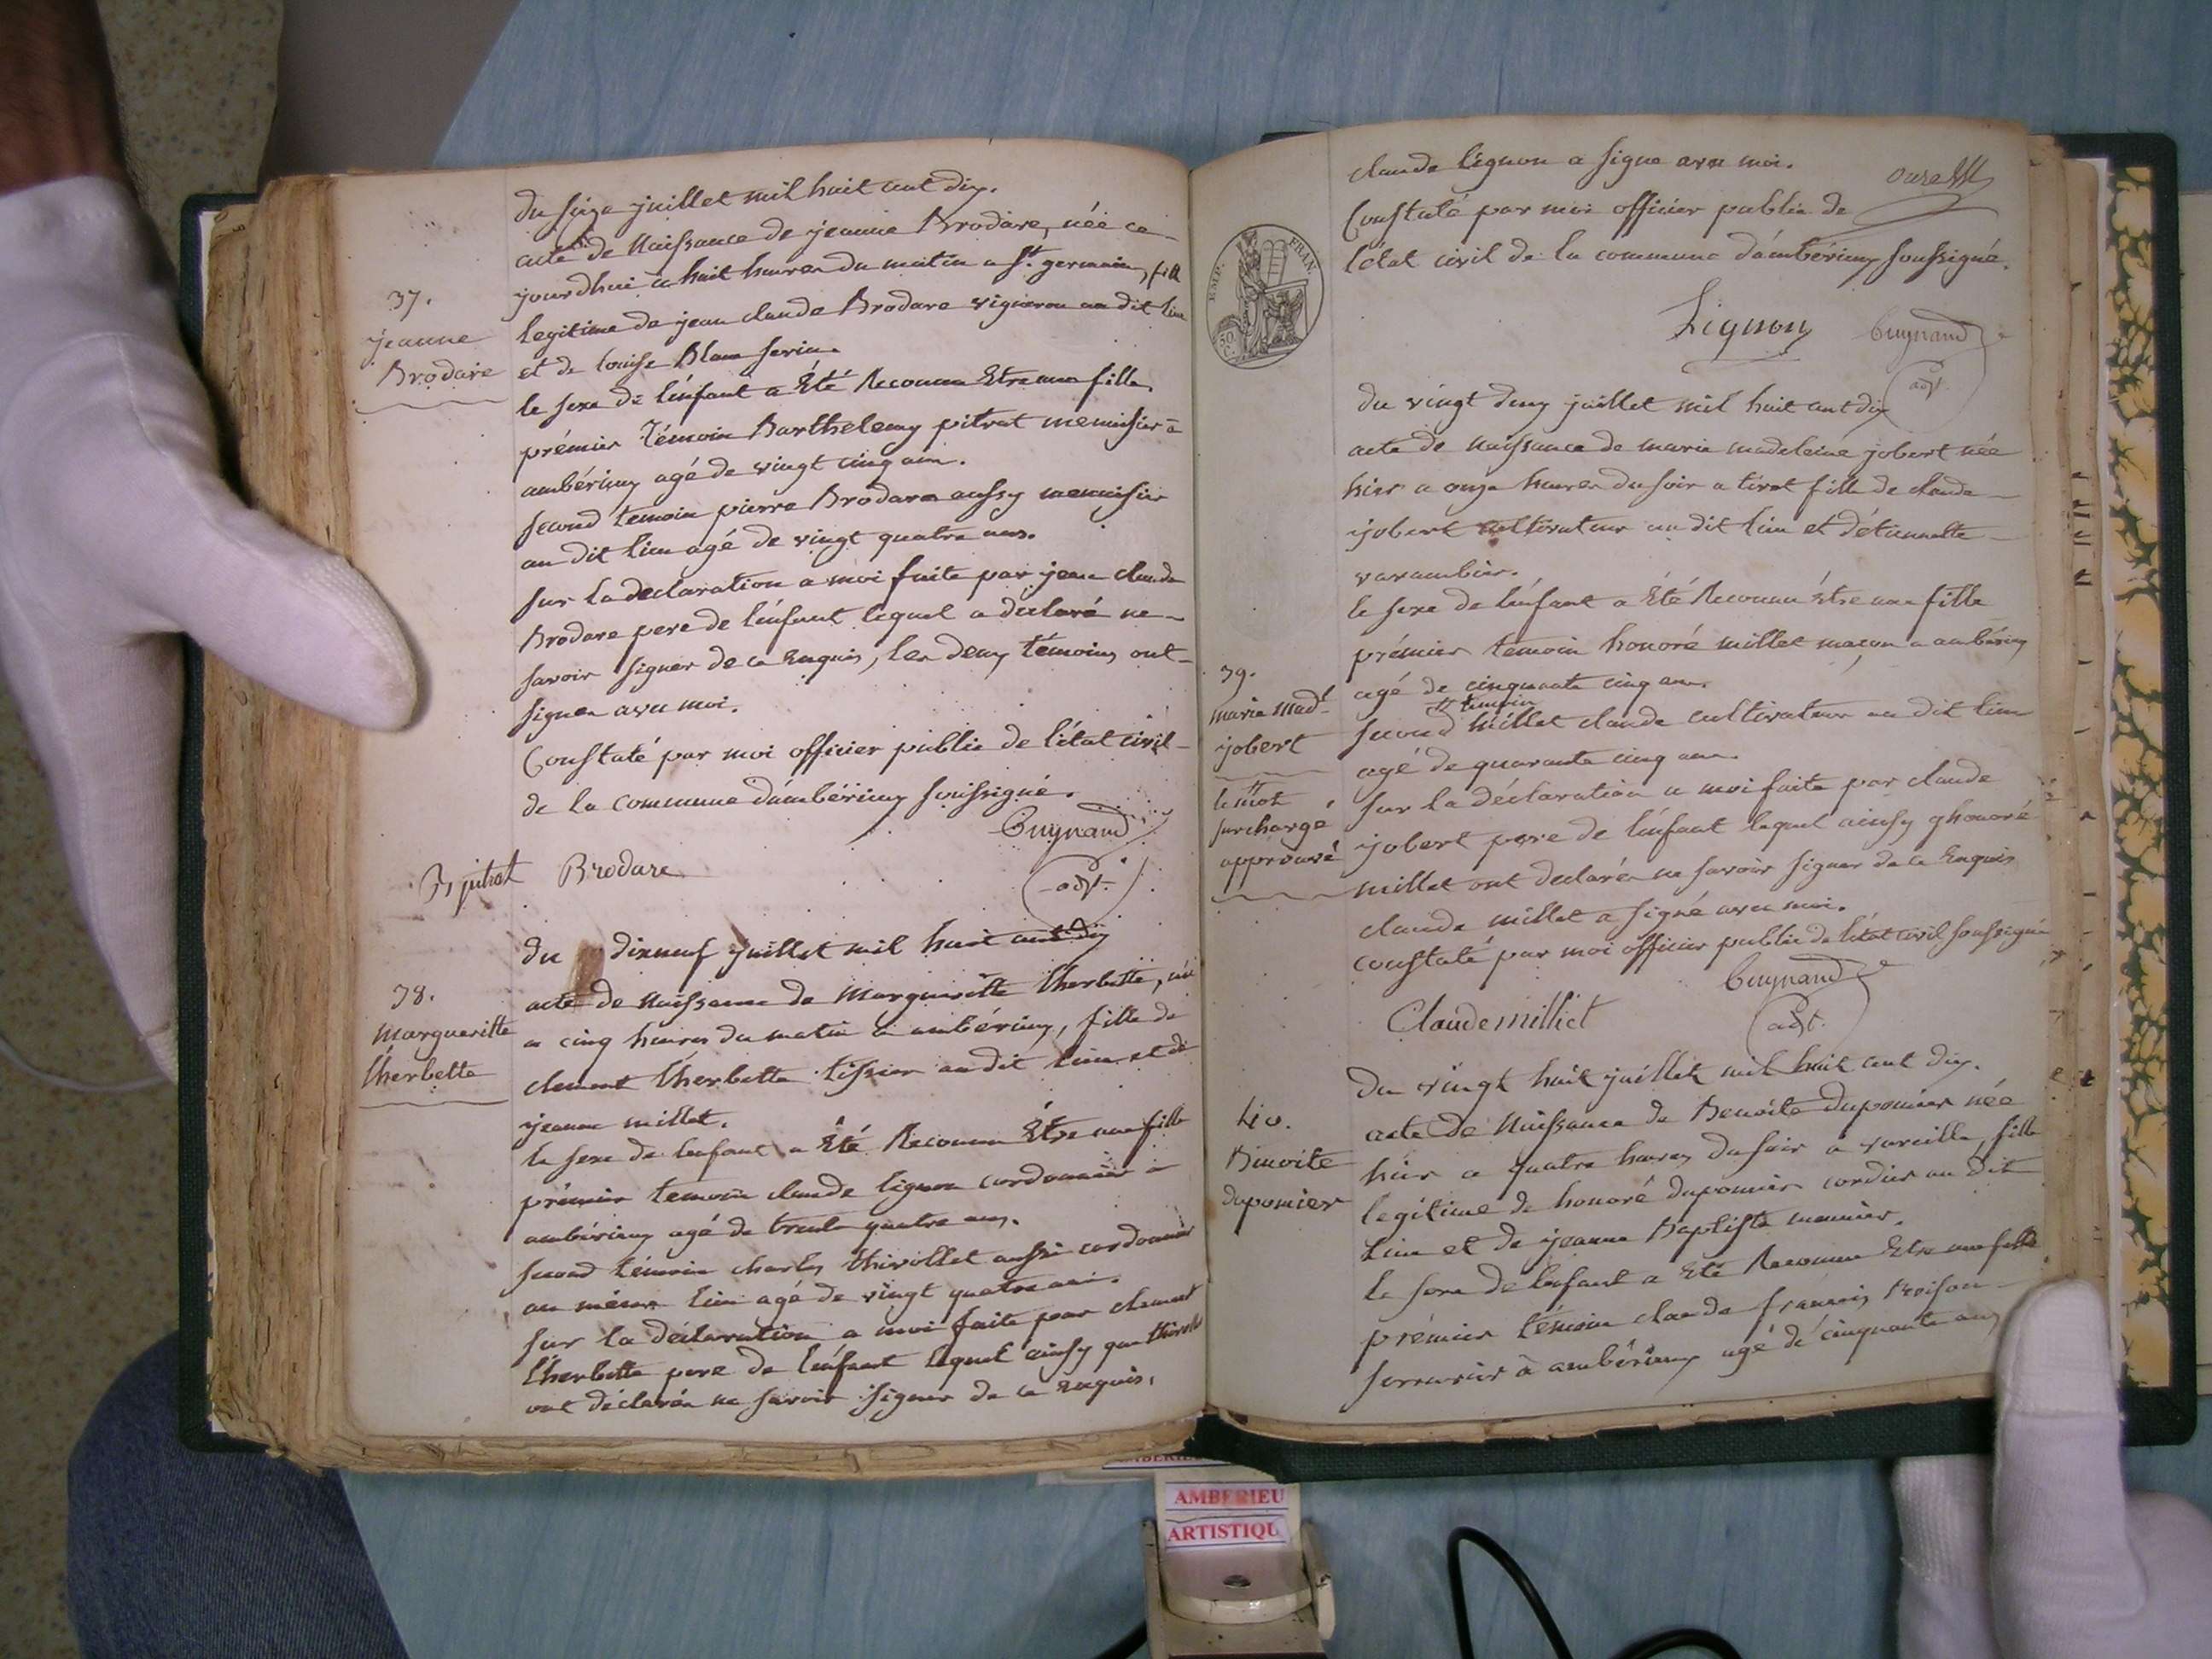 du seize juillet mil huit cent dix.
37.
jeanne
Brodare
acte de Naissance de jeanne Brodare, née ce
jourdhui a huit heures du matin a St. germain, fille
legitime de jean claude Brodare vigneron au dit lieu
et de louise Blanc
le sexe de l'enfant a Été Reconnu Etre une fille
prémier témoin Barthelemy pitrat menuisier à
ambérieux agé de vingt cinq ans.
second temoin pierre Brodare aussy menuisier
au dit lieu agé de vingt quatre ans.
sur la declaration a moi faite par jean claude
Brodare pere de l'enfant lequel a déclaré ne
savoir signer de ce Enquis, les deux témoins ont
signés avec moi.
Constaté par moi officier public de l'état civil
de la commune d'ambérieux soussigné.
Guynand
adjt.
B pitrat Brodare
du dixneuf juillet mil huit cent dix
38.
Margueritte
l'herbette
acte de Naissance de Margueritte l'herbette, née
a cinq heures du matin a ambérieux, fille de
clement l'herbette tissier au dit lieu et de
jeanne millet.
le sexe de lenfant a Été Reconnu Être une fille
prémier temoin claude lignon cordonnier à
ambérieux agé de trente quatre ans.
second témoin charles thivollet aussi cordonnier
au même lieu agé de vingt quatre ans.
sur la déclaration a moi faite par clement
l'herbette pere de l'enfant lequel ainsy que thivollet
ont déclarés ne savoir signer de ce Enquis.
claude lignon a signe avec moi.
Constaté par moi officier public de
l'état civil de la commune d'ambérieux soussigné.
EMP. FRAN.
50 C.
Lignon Guynand
adjt.
du vingt deux juillet mil huit cent dix
acte de naissance de marie madeleine jobert née
hier a onze heures du soir a tiret fille de claude
jobert cultivateur au dit lieu et d'étiennette
varambier.
le sexe de l'enfant a Été Reconnu Être une fille
prémier temoin honoré millet maçon a ambérieux
39.
marie madl.
jobert
le mot
surchargé
approuvé
agé de cinquante cinq ans.
temoin
second millet claude cultivateur au dit lieu
agé de quarante cinq ans.
sur la déclaration a moi faite par claude
jobert pere de l'enfant lequel ainsy q honoré
millet ont declarés ne savoir signer de ce Enquis
claude millet a signé avec moi.
constaté par moi officier public de l'état civil soussigné
Guynand
adjt.
Claude milliet
du vingt huit juillet mil huit cent dix.
40.
Benoite
dupomier
acte de Naissance de Benoite dupomier née
hier a quatre heures du soir a vareille, fille
legitime de honoré dupomier cordier au dit
lieu et de jeanne Baptiste meunier.
le sexe de lenfant a Eté Reconnu Etre une fille
prémier témoin claude françois
serrurier à ambérieux agé de cinquante ans
AMBERIEU
ARTISTIQU